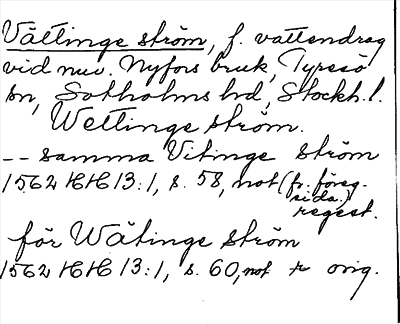 Vättinge ström, f. vattendrag
vid nuv. Nyfors bruk, Tyresö
sn, Sotholms hd, Stockh. l.
Wettinge ström.
-- samma Vitinge ström
1562 HH 13:1, s. 58, not (fr. föreg.
sida.)
regest.
för Wätinge ström
1562 HH 13:1, s. 60, not orig.